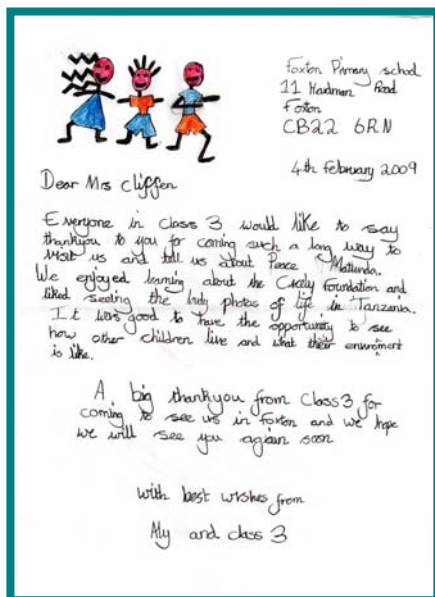 Foxton Primary school
11 Hardman Road
Foxton
CB22 6RN
4th february 2009
Dear Mrs Cliffen
Everyone in class 3 would like to say
thankyou to you for coming such a long way to
visit us and tell us about Peace Matunda.
We enjoyed learning about the Foundation and
liked seeing the lovely photos of life in Tanzania.
It was good to have the opportunity to see
how other children live and what their
is like.
A big thankyou from Class 3 for
coming to see us in foxton and we hope
we will see you again soon
with best wishes from
Aly and class 3